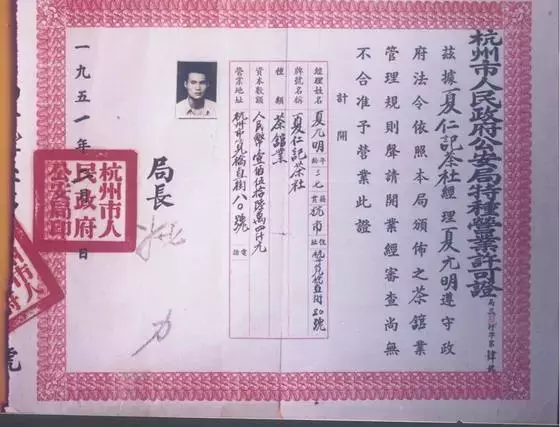 杭州市人民政府公安局特種營業許可證
茲據夏仁記茶社經理夏元明遵守政
府法令依照本局頒佈之茶舘業
管理規則聲請開業經審查尚無
不合准予營業此證
計開
經理姓名 夏元明 年齡 二七 籍貫 杭市 住址 直街80號
牌號名稱 夏仁記茶社
種類 茶舘業
資本數額 人民幣壹佰伍拾陸萬四仟元
營業地址 杭州市橋直街八〇號 電話
局長
一九五一年 日
杭州市人
民政府
公安局印
號